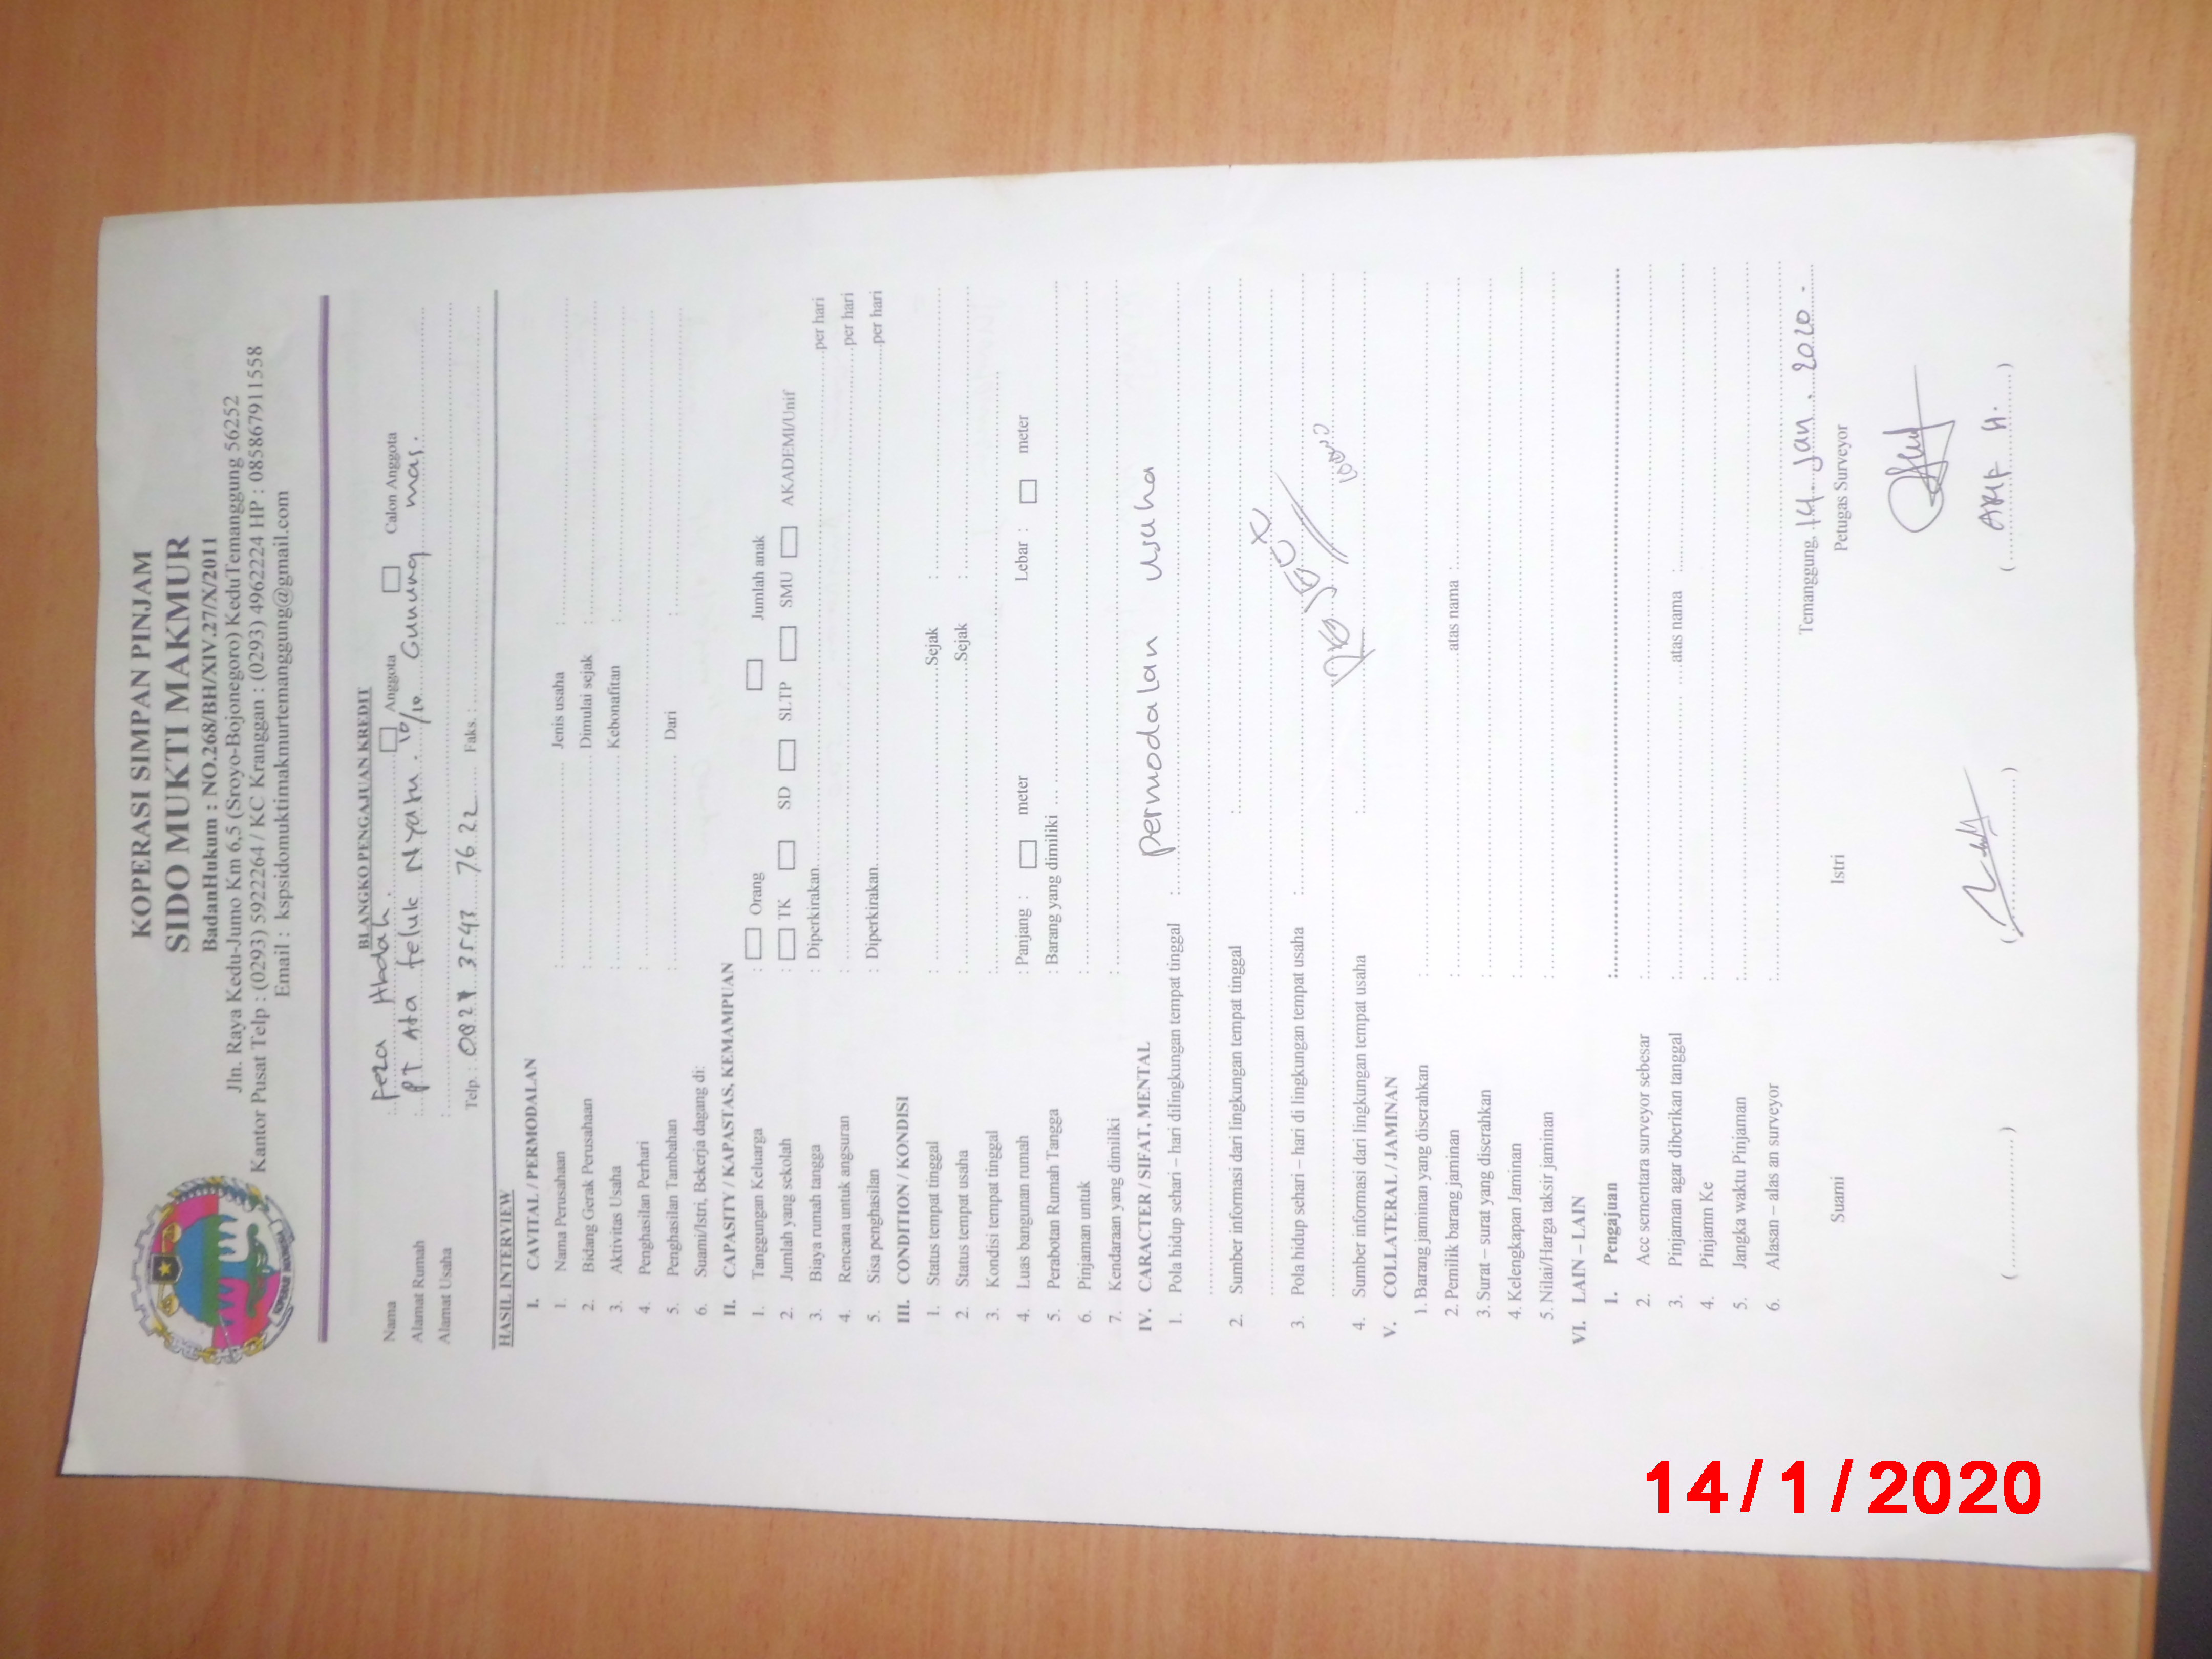 KOPERASI SIMPAN PINJAM
SIDO MUKTI MAKMUR
BadanHukum : NO.268/BH/XIV.27/X/2011
Jln. Raya Kedu-Jumo Km 6,5 (Sroyo-Bojonegoro) KeduTemanggung 56252
Kantor Pusat Telp : (0293) 5922264 / KC Kranggan : (0293) 4962224 HP : 085867911558
Email : kspsidomuktimakmurtemanggung@gmail.com
BLANGKO PENGAJUAN KREDIT
Nama : Feza Abdah. Anggota Calon Anggota
Alamat Rumah : PT Ada Teluk Nyatu. 10/10 Gunung mas.
Alamat Usaha :
Telp. : 3543 76 22 Faks. :
HASIL INTERVIEW
I. CAVITAL / PERMODALAN
1. Nama Perusahaan : Jenis usaha :
2. Bidang Gerak Perusahaan : Dimulai sejak :
3. Aktivitas Usaha : Kebonafitan :
4. Penghasilan Perhari :
5. Penghasilan Tambahan : Dari :
6. Suami/Istri, Bekerja dagang di:
II. CAPASITY / KAPASTAS, KEMAMPUAN
1. Tanggungan Keluarga : Orang Jumlah anak
2. Jumlah yang sekolah : TK SD SLTP SMU AKADEMI/Unif
3. Biaya rumah tangga : Diperkirakan per hari
4. Rencana untuk angsuran : per hari
5. Sisa penghasilan : Diperkirakan per hari
III. CONDITION / KONDISI
1. Status tempat tinggal : Sejak :
2. Status tempat usaha : Sejak :
3. Kondisi tempat tinggal :
4. Luas bangunan rumah : Panjang : meter Lebar : meter
5. Perabotan Rumah Tangga : Barang yang dimiliki
6. Pinjaman untuk
7. Kendaraan yang dimiliki :
IV. CARACTER / SIFAT, MENTAL
1. Pola hidup sehari – hari dilingkungan tempat tinggal : permodalan usaha
2. Sumber informasi dari lingkungan tempat tinggal :
3. Pola hidup sehari – hari di lingkungan tempat usaha :
4. Sumber informasi dari lingkungan tempat usaha :
V. COLLATERAL / JAMINAN
1. Barang jaminan yang diserahkan :
2. Pemilik barang jaminan : atas nama :
3. Surat – surat yang diserahkan :
4. Kelengkapan Jaminan :
5. Nilai/Harga taksir jaminan :
VI. LAIN – LAIN
1. Pengajuan :
2. Acc sementara surveyor sebesar :
3. Pinjaman agar diberikan tanggal : atas nama :
4. Pinjamn Ke :
5. Jangka waktu Pinjaman :
6. Alasan – alas an surveyor :
Temanggung, 14. Jan. 2020 -
Suami Istri Petugas Surveyor
( ) ( ) ( ARIF H. )
14/1/2020